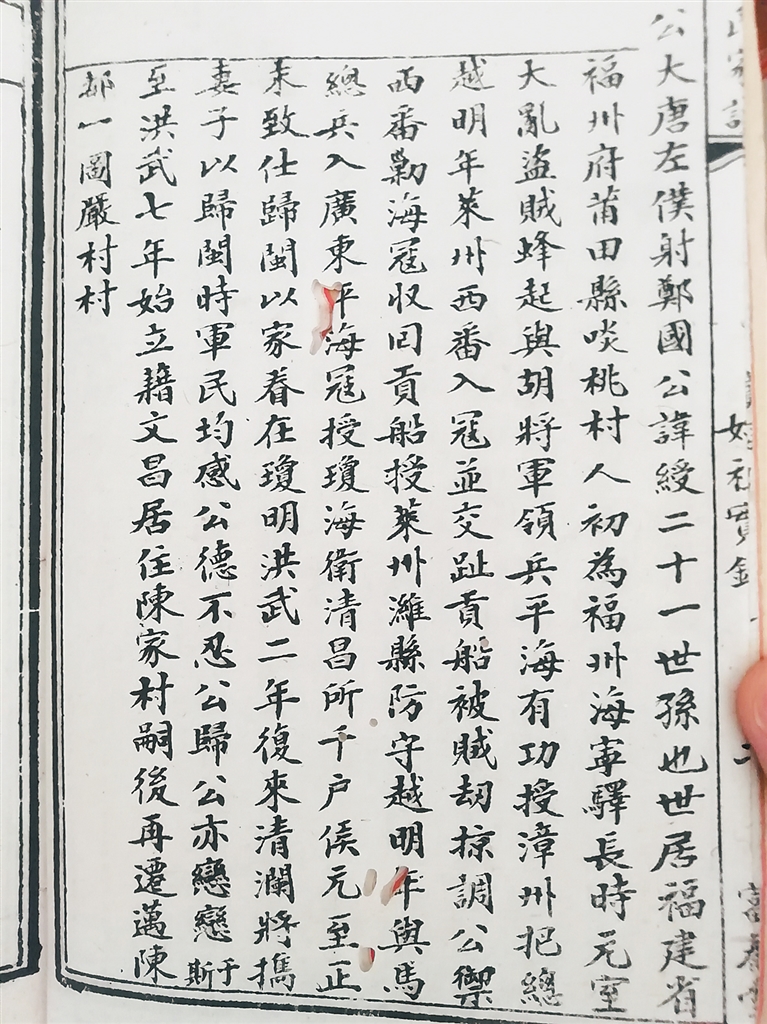 公大唐左僕射鄭國公諱綬二十一世孫也世居福建省
福州府莆田縣啖桃村人初為福州海寧驛長時元室
大亂盜賊蜂起與胡將軍領兵平海有功授漳州把總
越明年萊州西番入冦並交趾貢船被賊劫掠調公禦
西番勦海冦收回貢船授萊州濰縣防守越明年與馬
總兵入廣東平海冦授瓊海衛清昌所千户侯元至正
末致仕歸閩以家眷在瓊明洪武二年復來清瀾將携
妻子以歸閩時軍民均感公德不忍公歸公亦戀戀于斯
至洪武七年始立籍文昌居住陳家村嗣後再遷邁陳
都一圖嚴村村
實錄
二